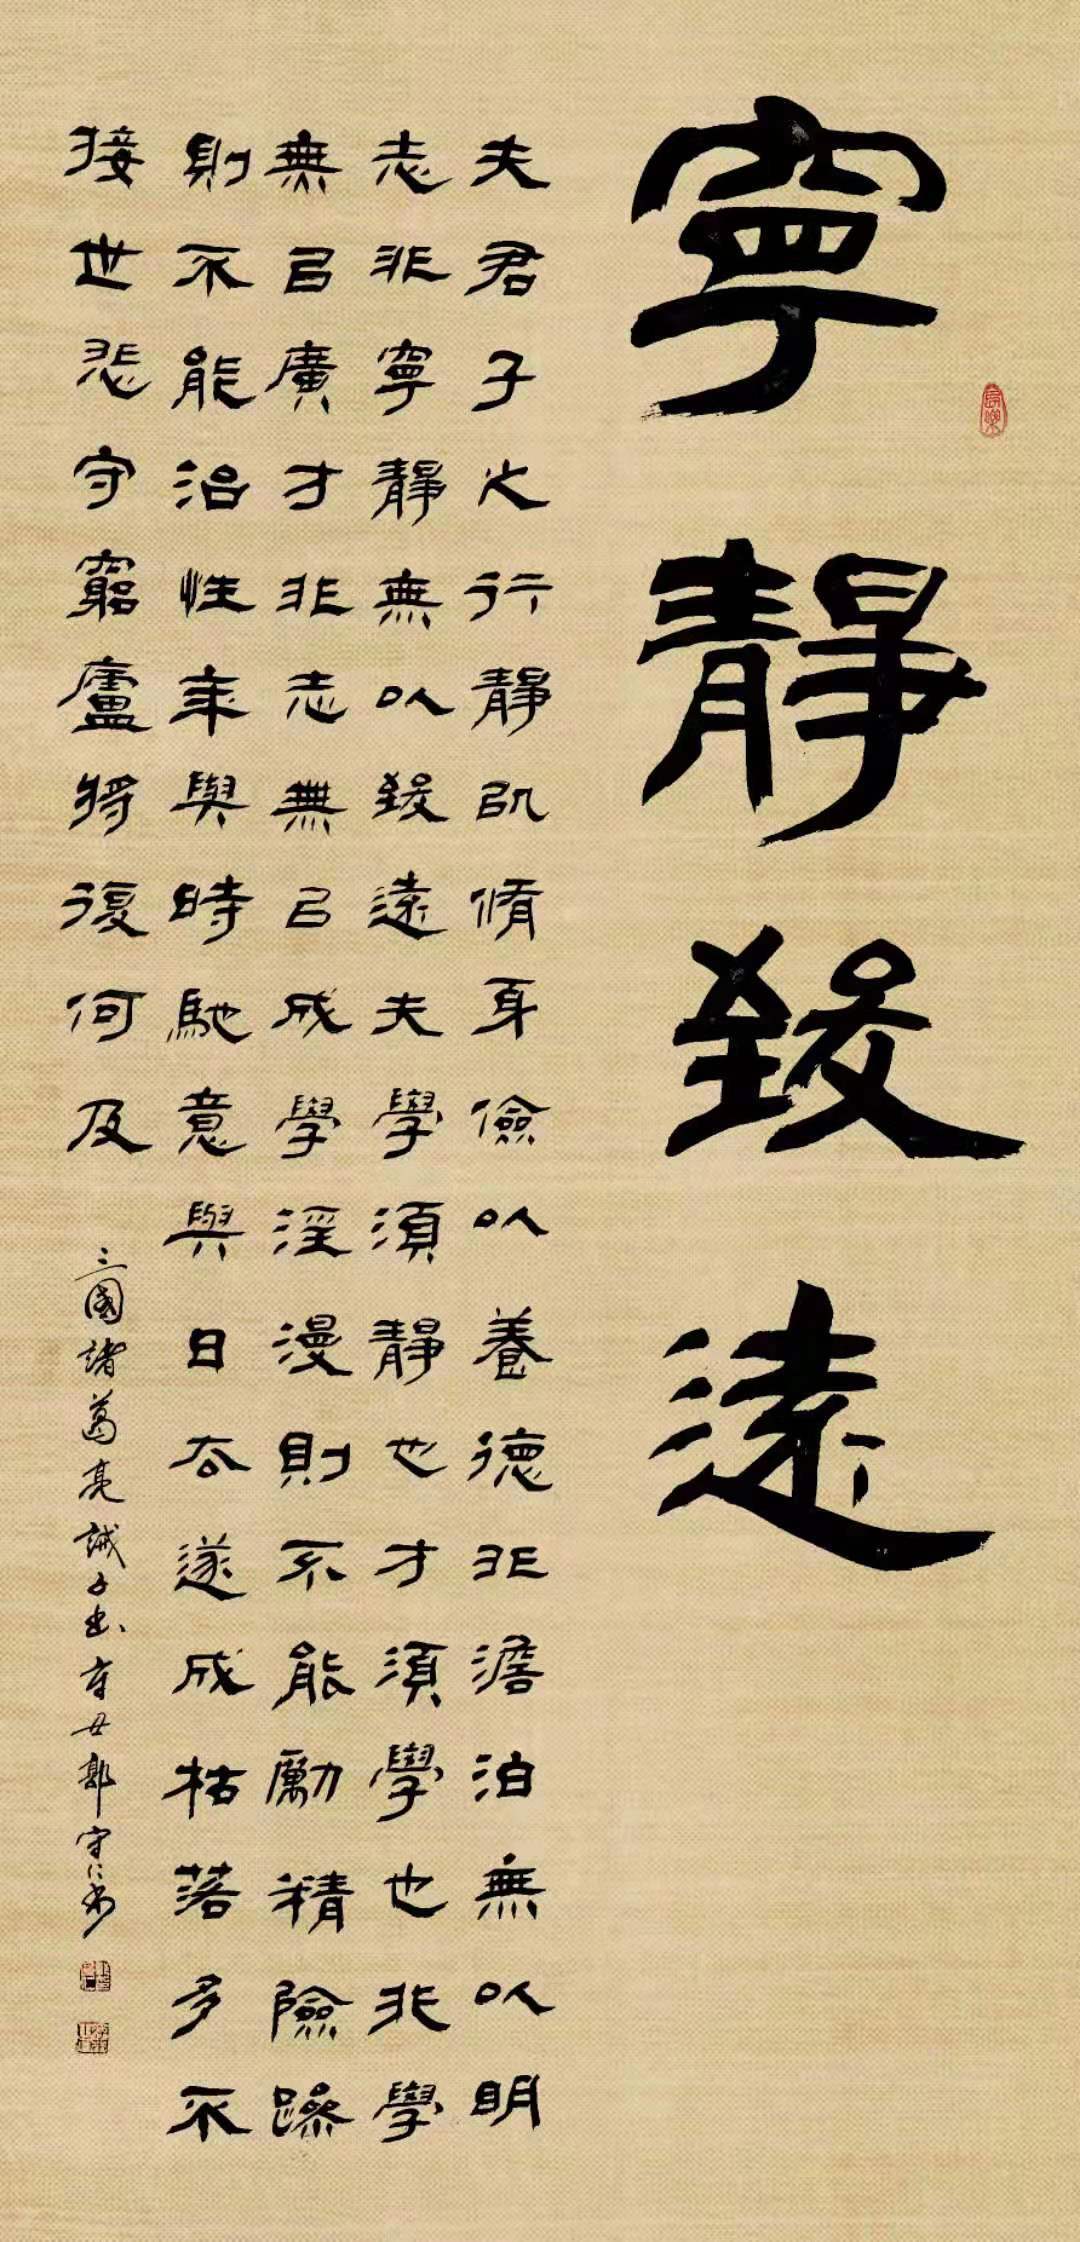 寧靜致遠
長樂
夫君子之行靜以脩身儉以養德非澹泊無以明
志非寧靜無以致遠夫學須靜也才須學也非學
無㠯廣才非志無㠯成學淫漫則不能勵精險躁
則不能治性年與時馳意與日去遂成枯落多不
接世悲守窮廬將復何及
三國諸葛亮誡子書辛丑郭守仁書